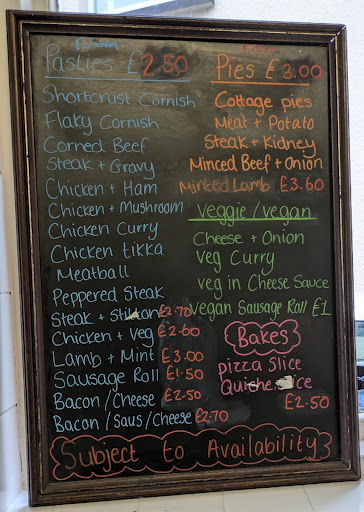 From
Pasties £2.50
Shortcrust Cornish
Flaky Cornish
Corned Beef
Steak + Gravy
Chicken + Ham
Chicken + Mushroom
Chicken Curry
Chicken tikka
Meatball
Peppered Steak
Steak + Stilton £2.70
Chicken + Veg £2.60
Lamb + Mint £3.00
Sausage Roll £1.50
Bacon / Cheese £2.50
Bacon / Saus / Cheese £2.70
From
Pies £3.00
Cottage pies
Meat + Potato
Steak + Kidney
Minced Beef + Onion
Minted Lamb £3.60
Veggie / vegan
Cheese + Onion
Veg Curry
Veg in Cheese Sauce
Vegan Sausage Roll £1
Bakes
Pizza Slice
Quiche Slice
£2.50
Subject to Availability